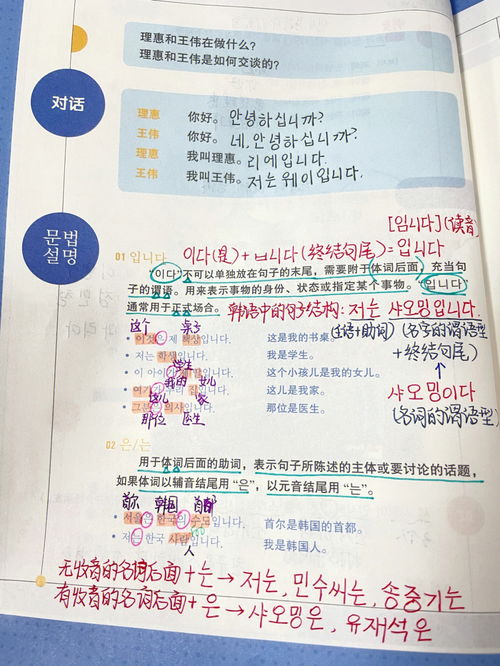 理惠和王伟在做什么?
理惠和王伟是如何交谈的?
对话
理惠 你好。 안녕하십니까?
王伟 你好。 네, 안녕하십니까?
理惠 我叫理惠。 리에입니다.
王伟 我叫王伟。 저는 웨이입니다.
[임니다](读音)
文法
说明
이다(是)+ㅂ니다(终结句尾)=입니다
01 입니다
“이다”不可以单独放在句子的末尾，需要附于体词后面，充当句
子的谓语。用来表示事物的身份、状态或指定某个事物。 입니다
通常用于正式场合。 韩语中的句子结构: 저는 샤오밍입니다.
(主语+助词) (名字的谓语型
+终结句尾)
这个 桌子
• 이것은 제 책상입니다. 这是我的书桌。
学生
• 저는 학생입니다. 我是学生。
• 이 아이 这个小孩儿是我的女儿。
我的 女儿
샤오밍이다
(名词的谓语型)
• 여기가 우리 집입니다. 这儿是我家。
这儿 家
• 그분은 의사입니다. 那位是医生。
那位 医生
02 은/는
用于体词后面的助词，表示句子所陈述的主体或要讨论的话题，
如果体词以辅音结尾用“은”，以元音结尾用“는”。
首尔 韩国 首都
• 서울은 한국의 수도입니다. 首尔是韩国的首都。
• 저는 한국 사람입니다. 我是韩国人。
人
无收音的名词后面+는→저는, 민수씨는, 송중기는
有收音的名词后面+은→샤오밍은, 유재석은